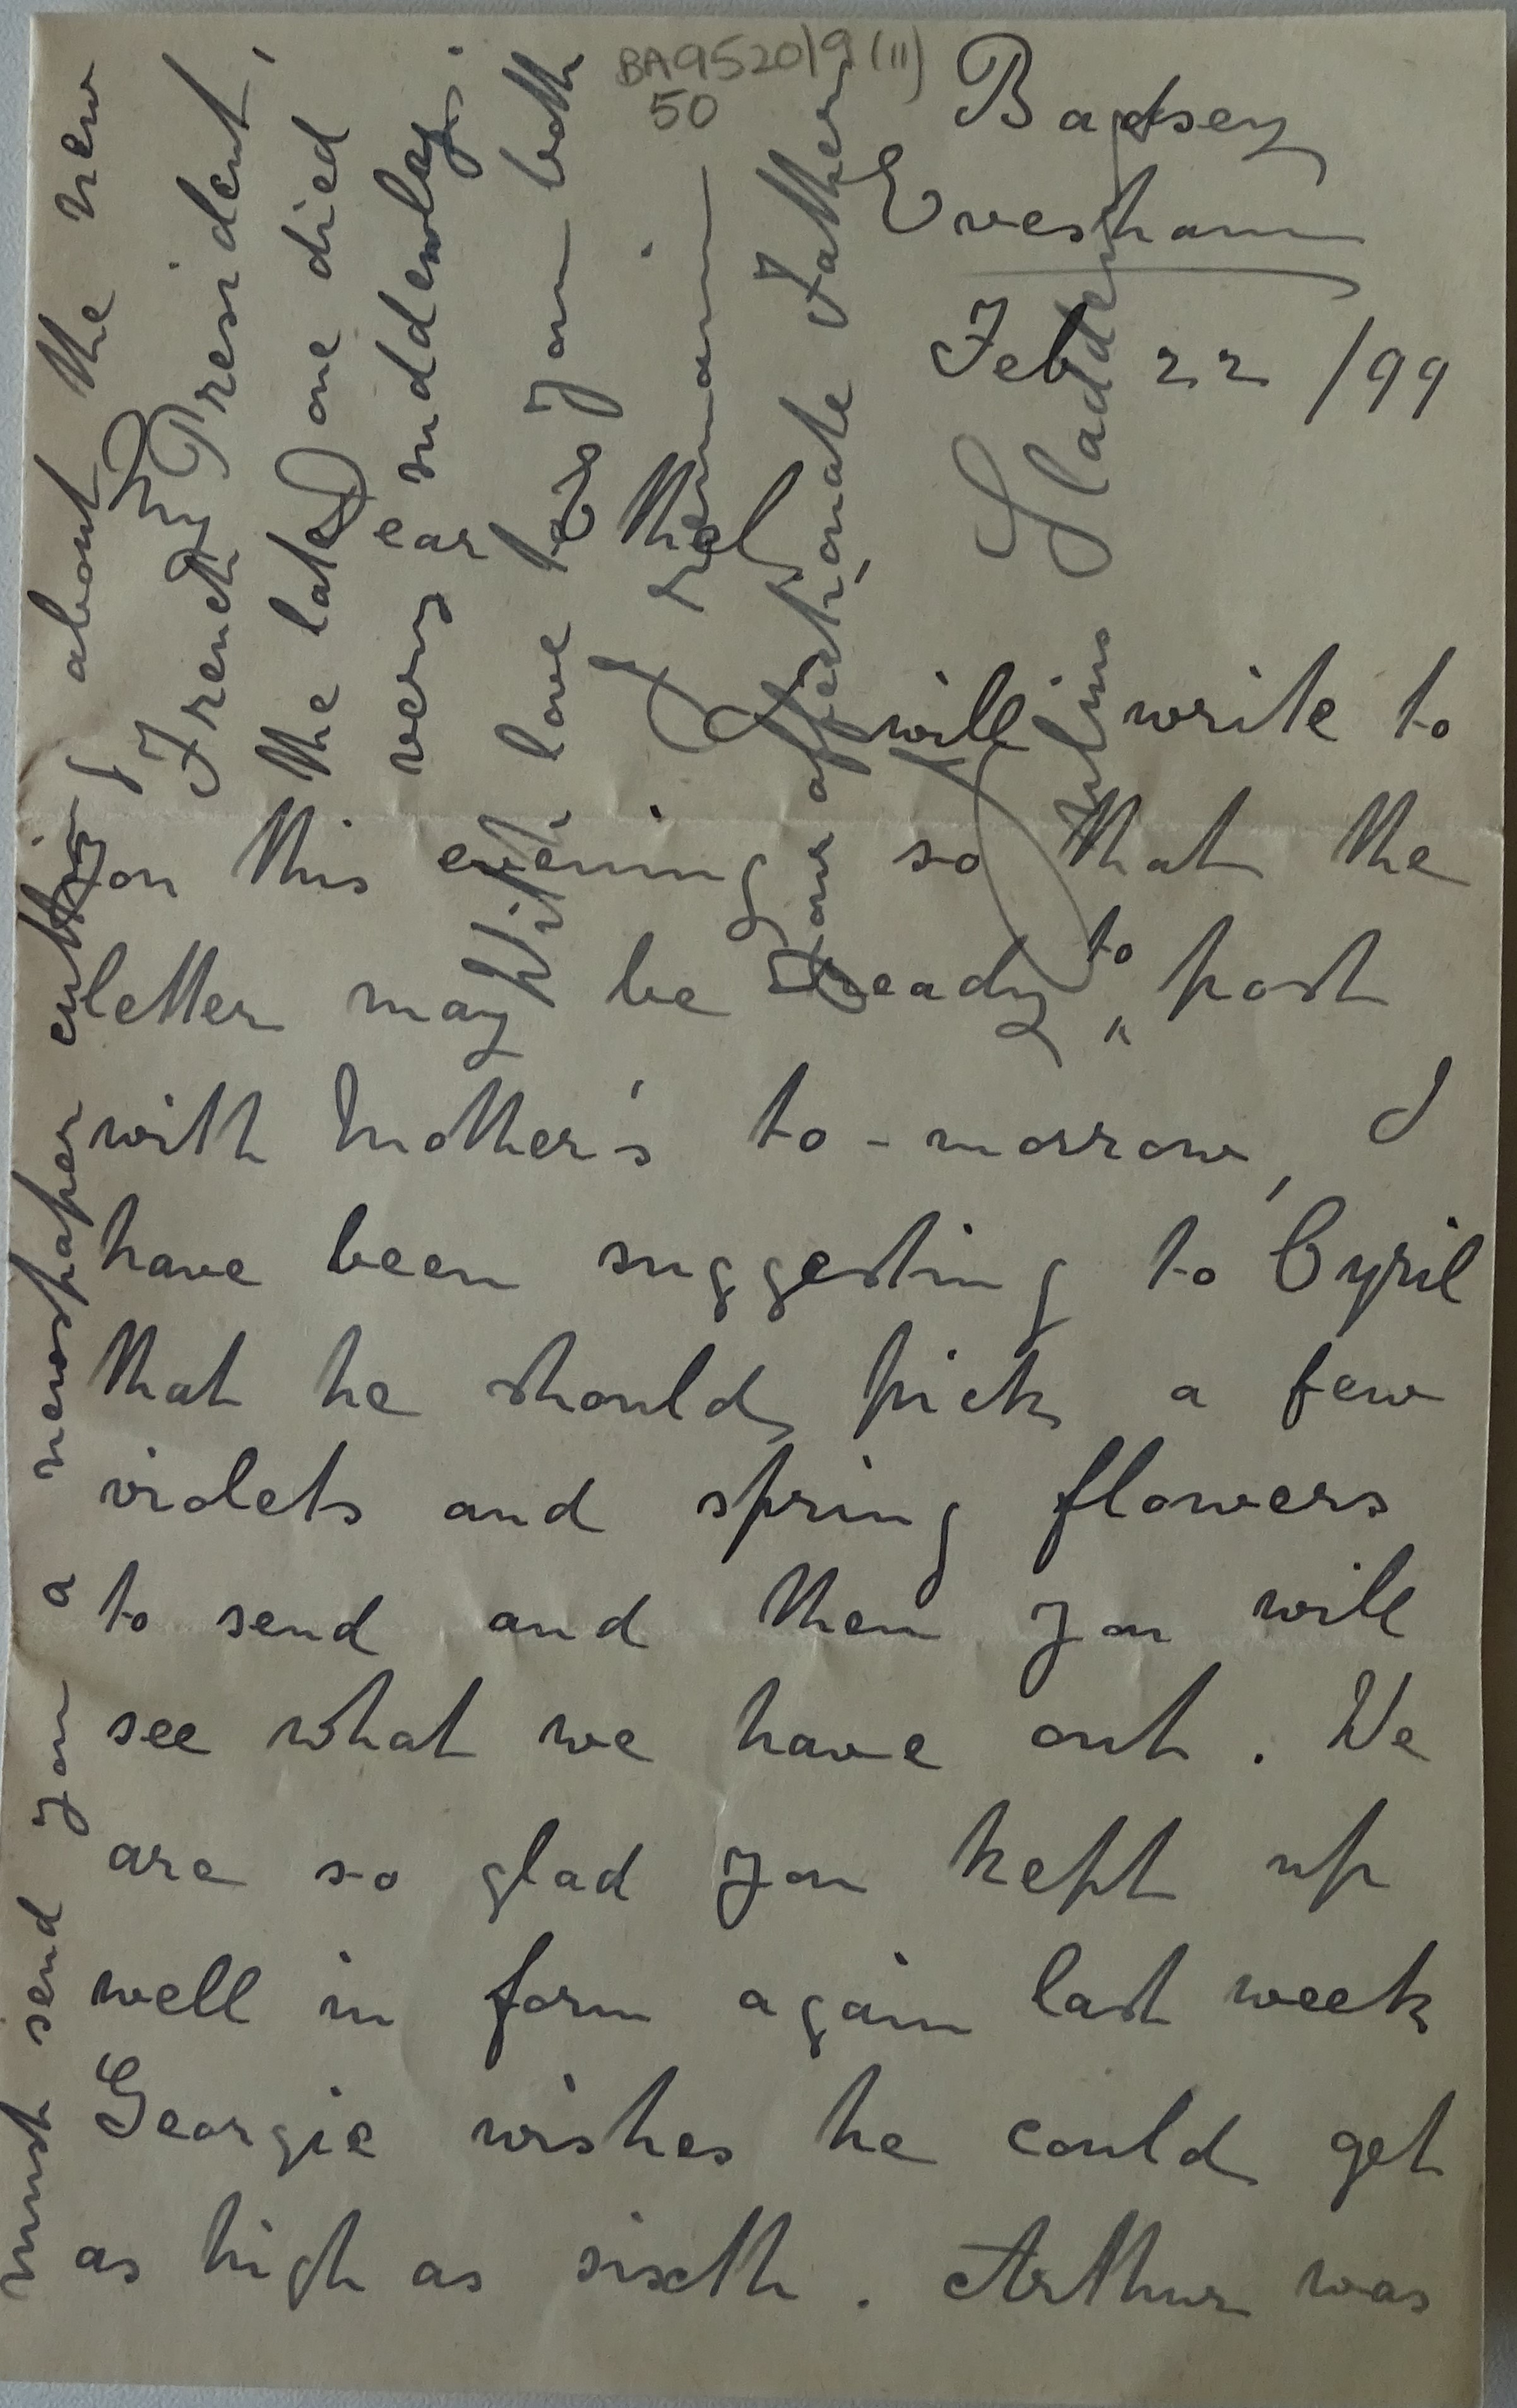 BA9520/9 (11)
50
Badsey
Evesham
Feb 22 /99
My Dear Ethel
I will write to
you this evening so that the
letter may be ready to post
with Mother's to-morrow, I
have been suggesting to Cyril
that he should pick a few
violets and spring flowers
to send and then you will
see what we have out. We
are so glad you kept up
well in form again last week
Georgie wishes he could get
as high as sixth. Arthur was
must send you a newspaper cutting about the new
French President,
the late one died
very suddenly.
With love to you both
I remain
Your affectionate Father
Julius Sladden